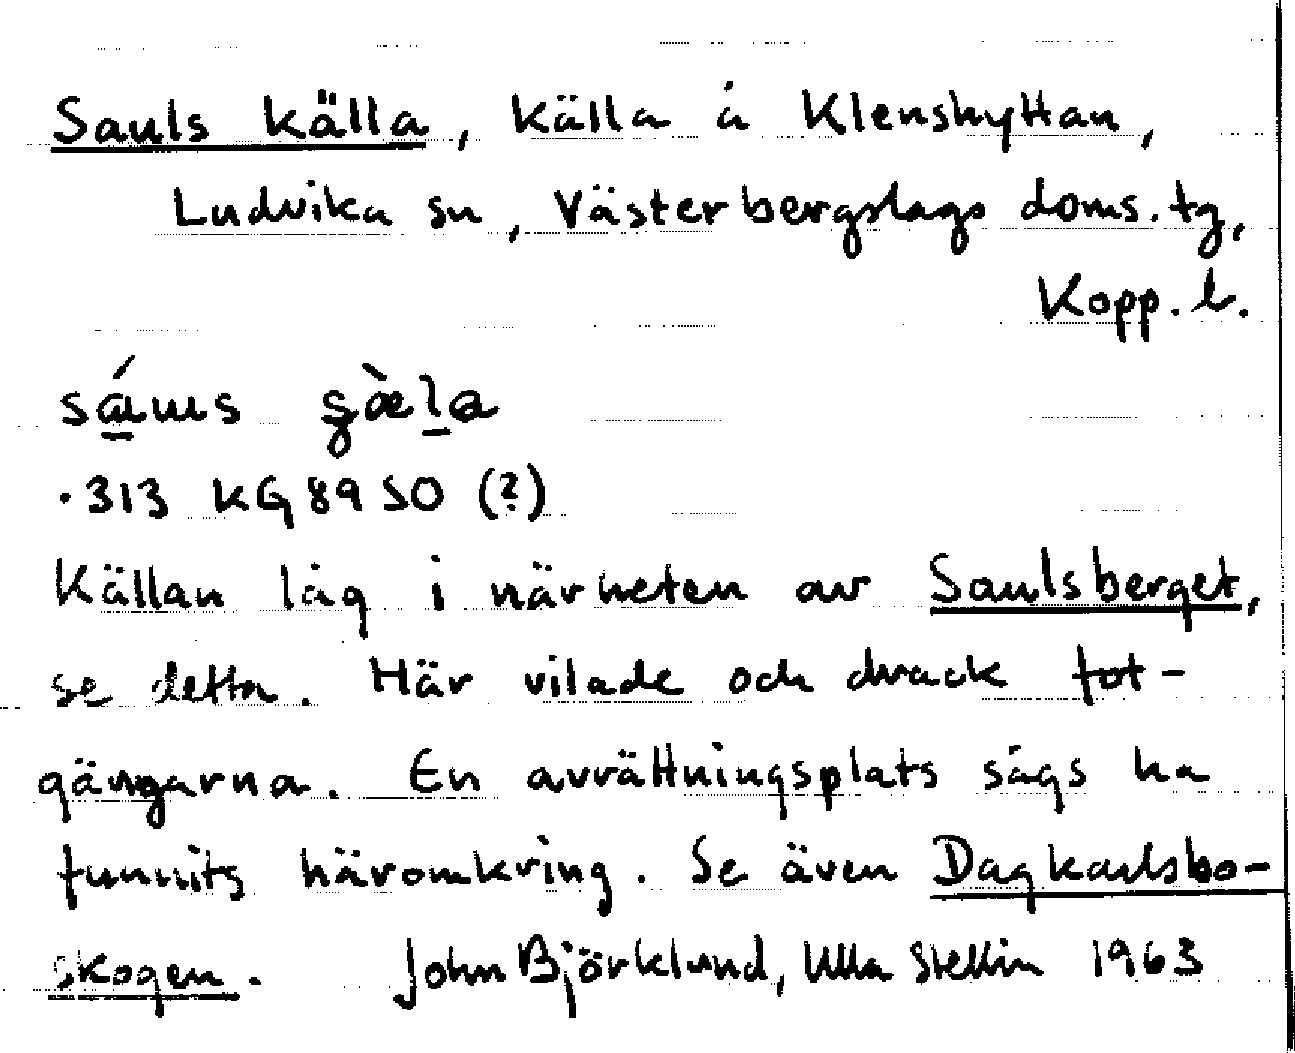 Sauls källa, källa å Klenshyttan,
Ludvika sn, Västerbergslags doms. tg,
Kopp. l.
.313 KG 89 SO (?)
Källan låg i närheten av Saulsberget,
se detta. Här vilade och drack fot-
gängarna. En avrättningsplats sägs ha
funnits häromkring. Se även Dagkarlsbo-
skogen. John Björklund, Ulla Stellin 1963